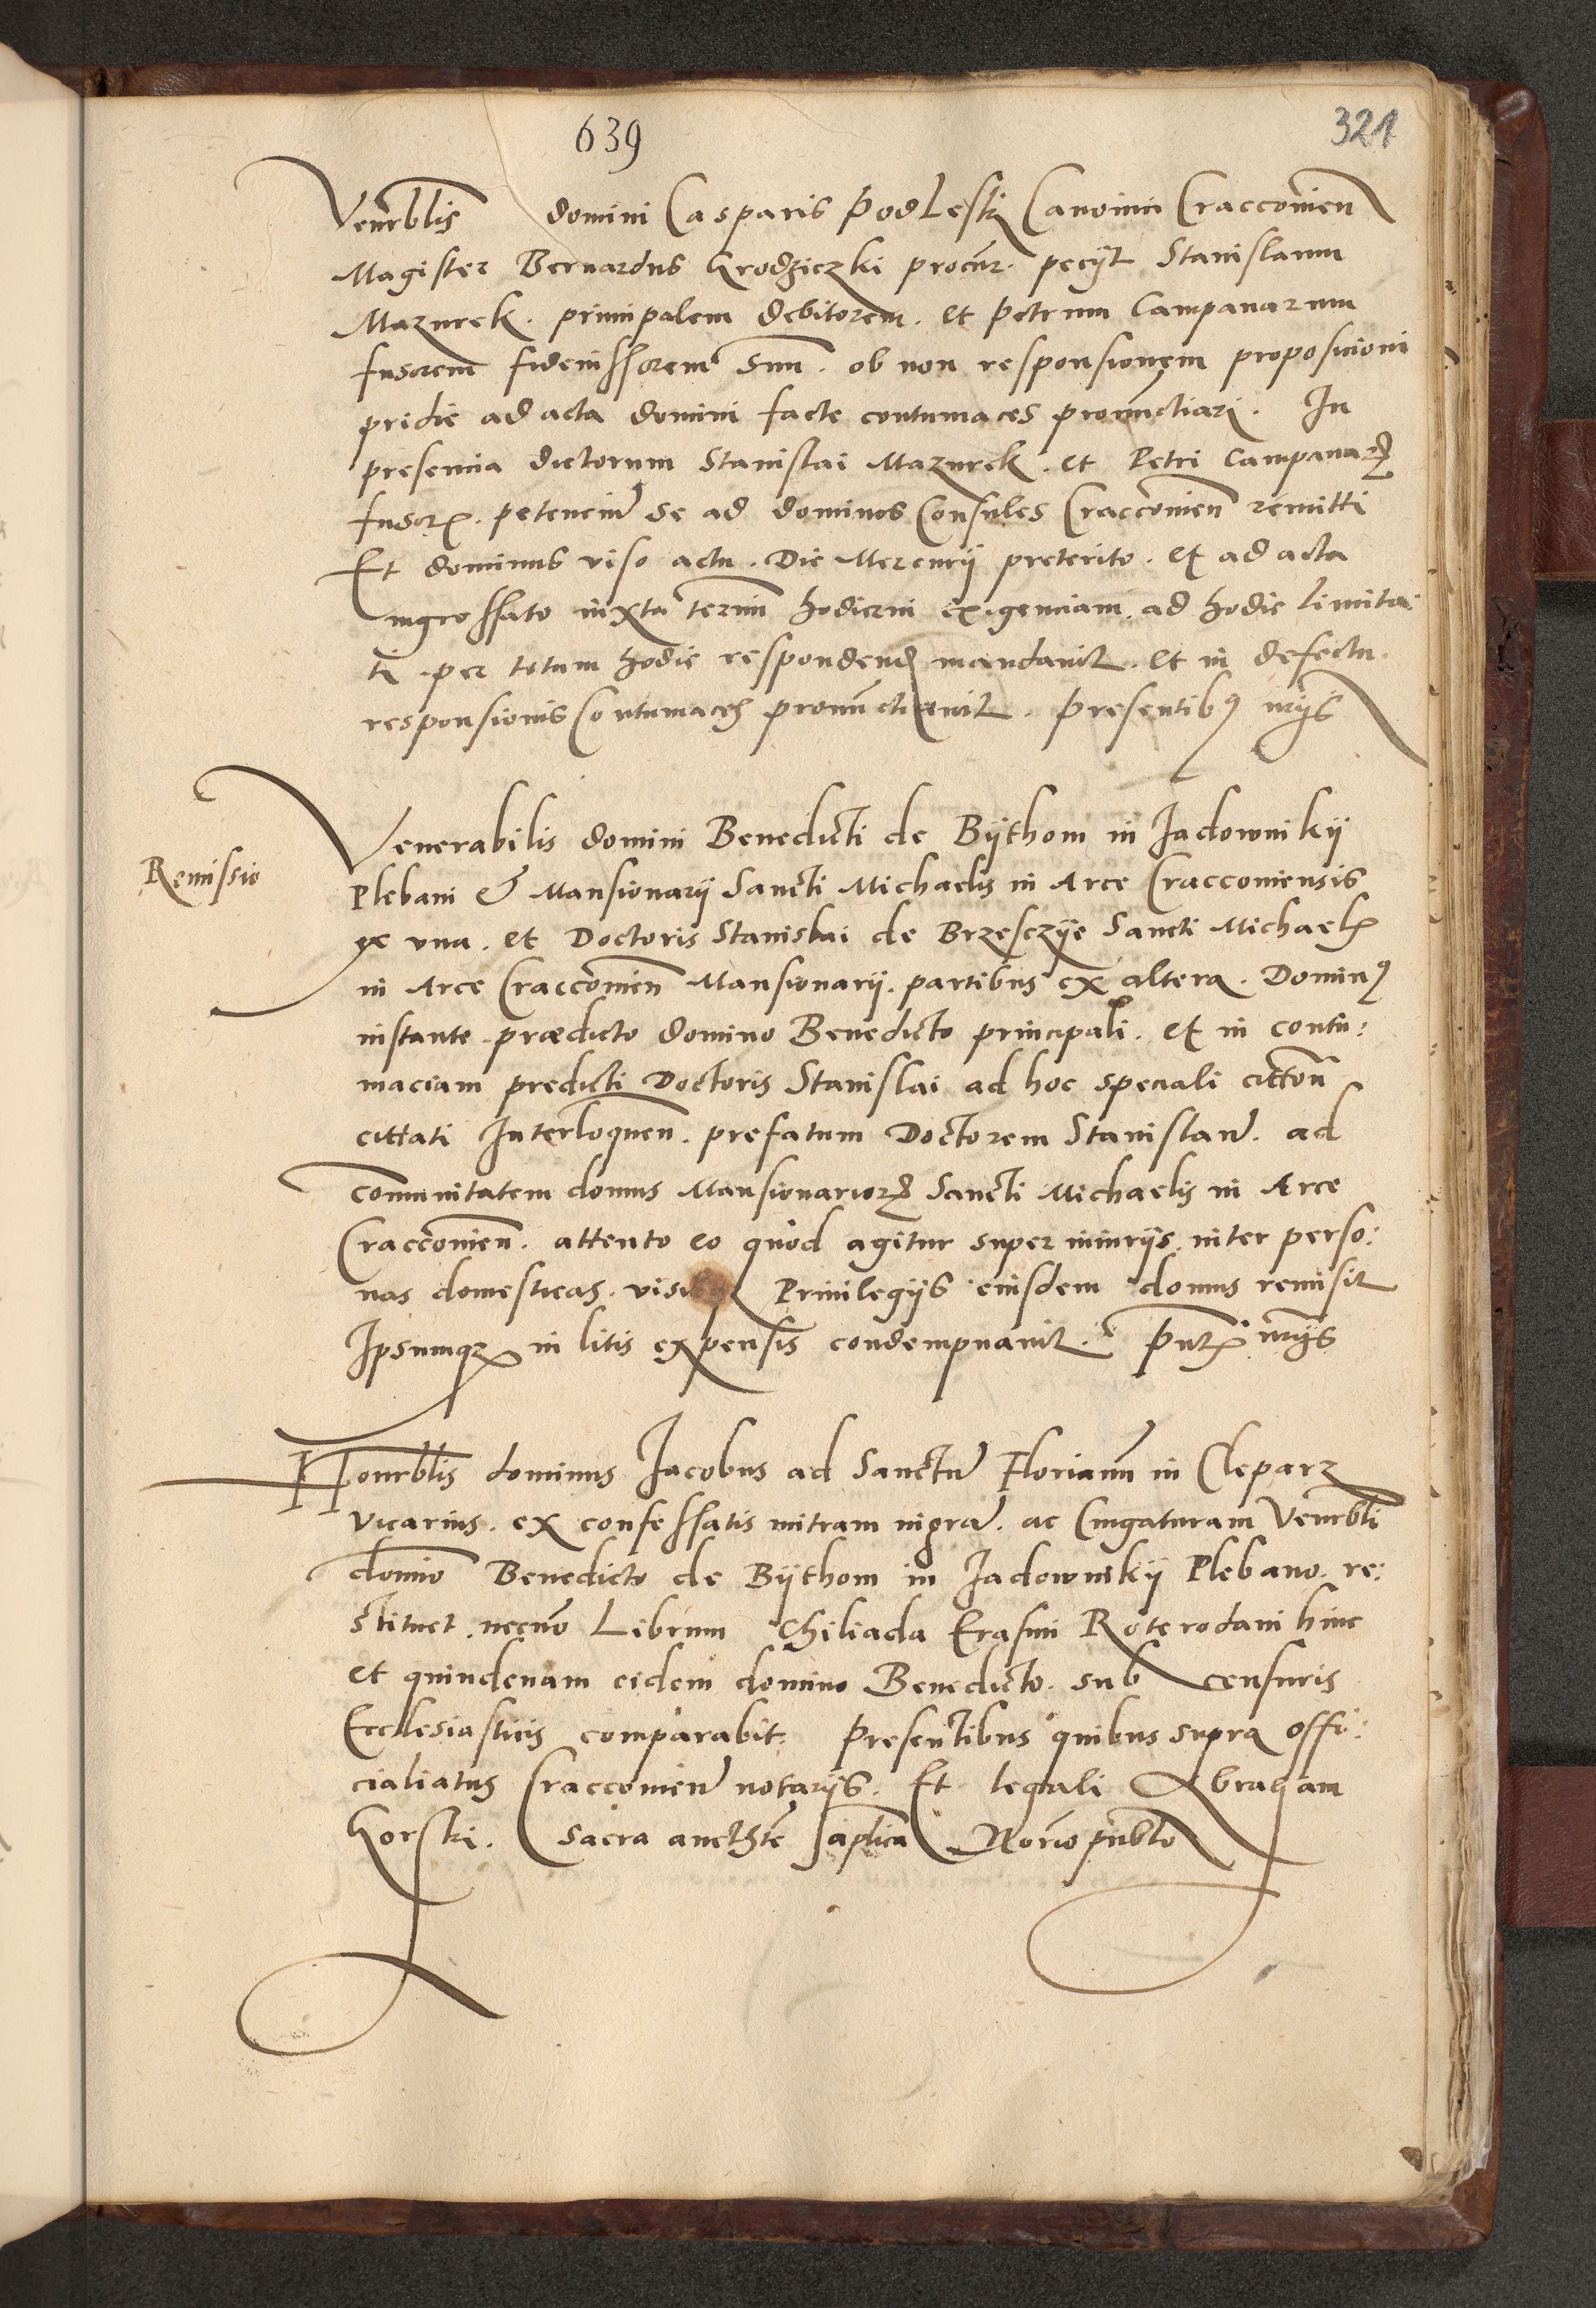 639
321
Venerblis domini Casparis Podleski Canonici Craccouien
Magister Bernardus Grodziczki procur. peciit Stanislaum
Mazurek. principalem debitorem. et Petrum Campanarum
fusorem fideiussorem suum. ob non responsionem proposicioni
pridie ad acta domini facte contumaces pronunctiari. In
presencia dictorum Stanislai Mazurek. et Petri Campanar
fusor. petenciu se ad dominos Consules Craccouien remitti
Et dominus viso actu. Die Mercurij preterito. et ad acta
ingrossato iuxta termi hodierni exigenciam. ad hodie limita:
ti. per totum hodie respondend mandauit. et in defectu.
responsionis Contumaces pronunctiauit. Presentibus nrijs
Remissio
Venerabilis domini Benedicti de Bijthom in Jadownikij
Plebani & Mansionarij Sancti Michaelis in Arce Craccouiensis
ex vna. et Doctoris Stanislai de Brzesczije Sancti Michael
in Arce Craccouien Mansionarij. partibus ex altera. Dominus
instante prædicto domino Benedicto principali. et in contu:
maciam predicti Doctoris Stanislai ad hoc speciali citton
cittati Interloquen. prefatum Doctorem Stanislau. ad
communitatem domus Mansionarior Sancti Michaelis in Arce
Craccouien. attento eo quod agitur super iniurijs. inter perso:
nas domesticas. Priuilegijs eiusdem domus remisit
Ipsumque in litis expensis condempnauit. Pntibus nrijs
Honrblis dominus Jacobus ad Sanctu Florianum in Cleparz
vicarius. ex confessatis mitram nigra. ac Cingaturam Venerbli
domino Benedicto de Bijthom in Jadownikij Plebano. re:
stituet. necno Librum Chiliada Erasmi Roterodami hinc
et quindenam eidem domino Benedicto. sub censuris
Ecclesiasticis comparabit. Presentibus quibus supra offi:
cialiatus Craccouien notarijs. Et legali Abraham
Gorski. Sacra aucthte aplica Norio publo